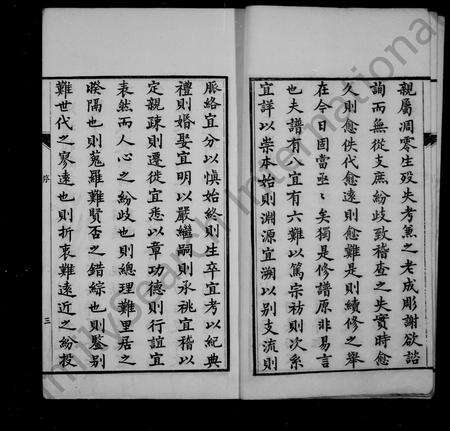 親屬凋零生歿失考兼之老成彫謝欲諮
詢而無從支庶紛歧致稽查之失實時愈
久則愈佚代愈遠則愈難是則續修之舉
在今固當亟亟矣獨是修譜原非易言
也夫譜有六宜有六難以篤宗祊則次系
宜詳以崇本始則淵源宜溯以別支流則
脈絡宜分以慎始終則生卒宜考以紀典
禮則婚娶宜明以嚴繼嗣則承祧宜稽以
定親疎則遷徙宜悉以章功德則行誼宜
表然而人心之紛歧也則總理難里居之
暌隔也則蒐羅難賢否之錯綜也則鑒別
難世代之寥遠也則折衷難遠近之紛投
序
三
FamilySearch International